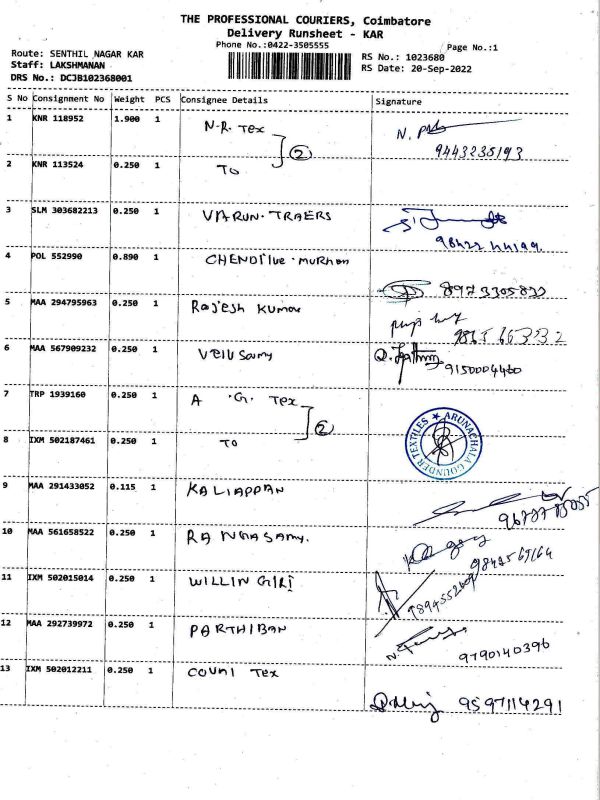 THE PROFESSIONAL COURIERS, Coimbatore
Delivery Runsheet - KAR
Phone No.:0422-3505555
Page No.:1
Route: SENTHIL NAGAR KAR
Staff: LAKSHMANAN
DRS No.: DCJB102368001
RS No.: 1023680
RS Date: 20-Sep-2022
S No Consignment No Weight PCS Consignee Details Signature
1 KNR 118952 1.900 1 N.R. Tex
9443235193
2 KNR 113524 0.250 1 TO
②
3 SLM 303682213 0.250 1 VARUN. TRAERS
98422 44199
4 POL 552990 0.890 1
8973305833
5 MAA 294795963 0.250 1 Rajesh Kumar
6 MAA 567909232 0.250 1 Velusamy
9150004460
7 TRP 1939160 0.250 1 A .G. Tex
②
8 IXM 502187461 0.250 1 TO
ARUNACHALA GOUNDER TEXTILES
9 MAA 291433052 0.115 1 KALIAPPAN
10 MAA 561658522 0.250 1 RANGASAMY.
11 IXM 502015014 0.250 1 WILLIN GIRI
12 MAA 292739972 0.250 1 PARTHIBAN
9790140396
13 IXM 502012211 0.250 1 Tex
9597114291